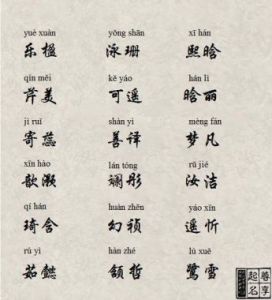 yuè xuàn yǒng shān xī hán
乐楦 泳珊 熙晗
qín měi kě yáo hán lì
芹美 可遥 晗丽
jì ruǐ shàn yì mèng fán
寄蕊 善译 梦凡
xīn hào lán tóng rǔ jié
歆灏 斓彤 汝洁
qí hán huàn zhēn yáo xīn
琦含 幻祯 遥忻
rú yì hàn zhé lù xuě
茹懿 颔哲 鹭雪
尊享
起名